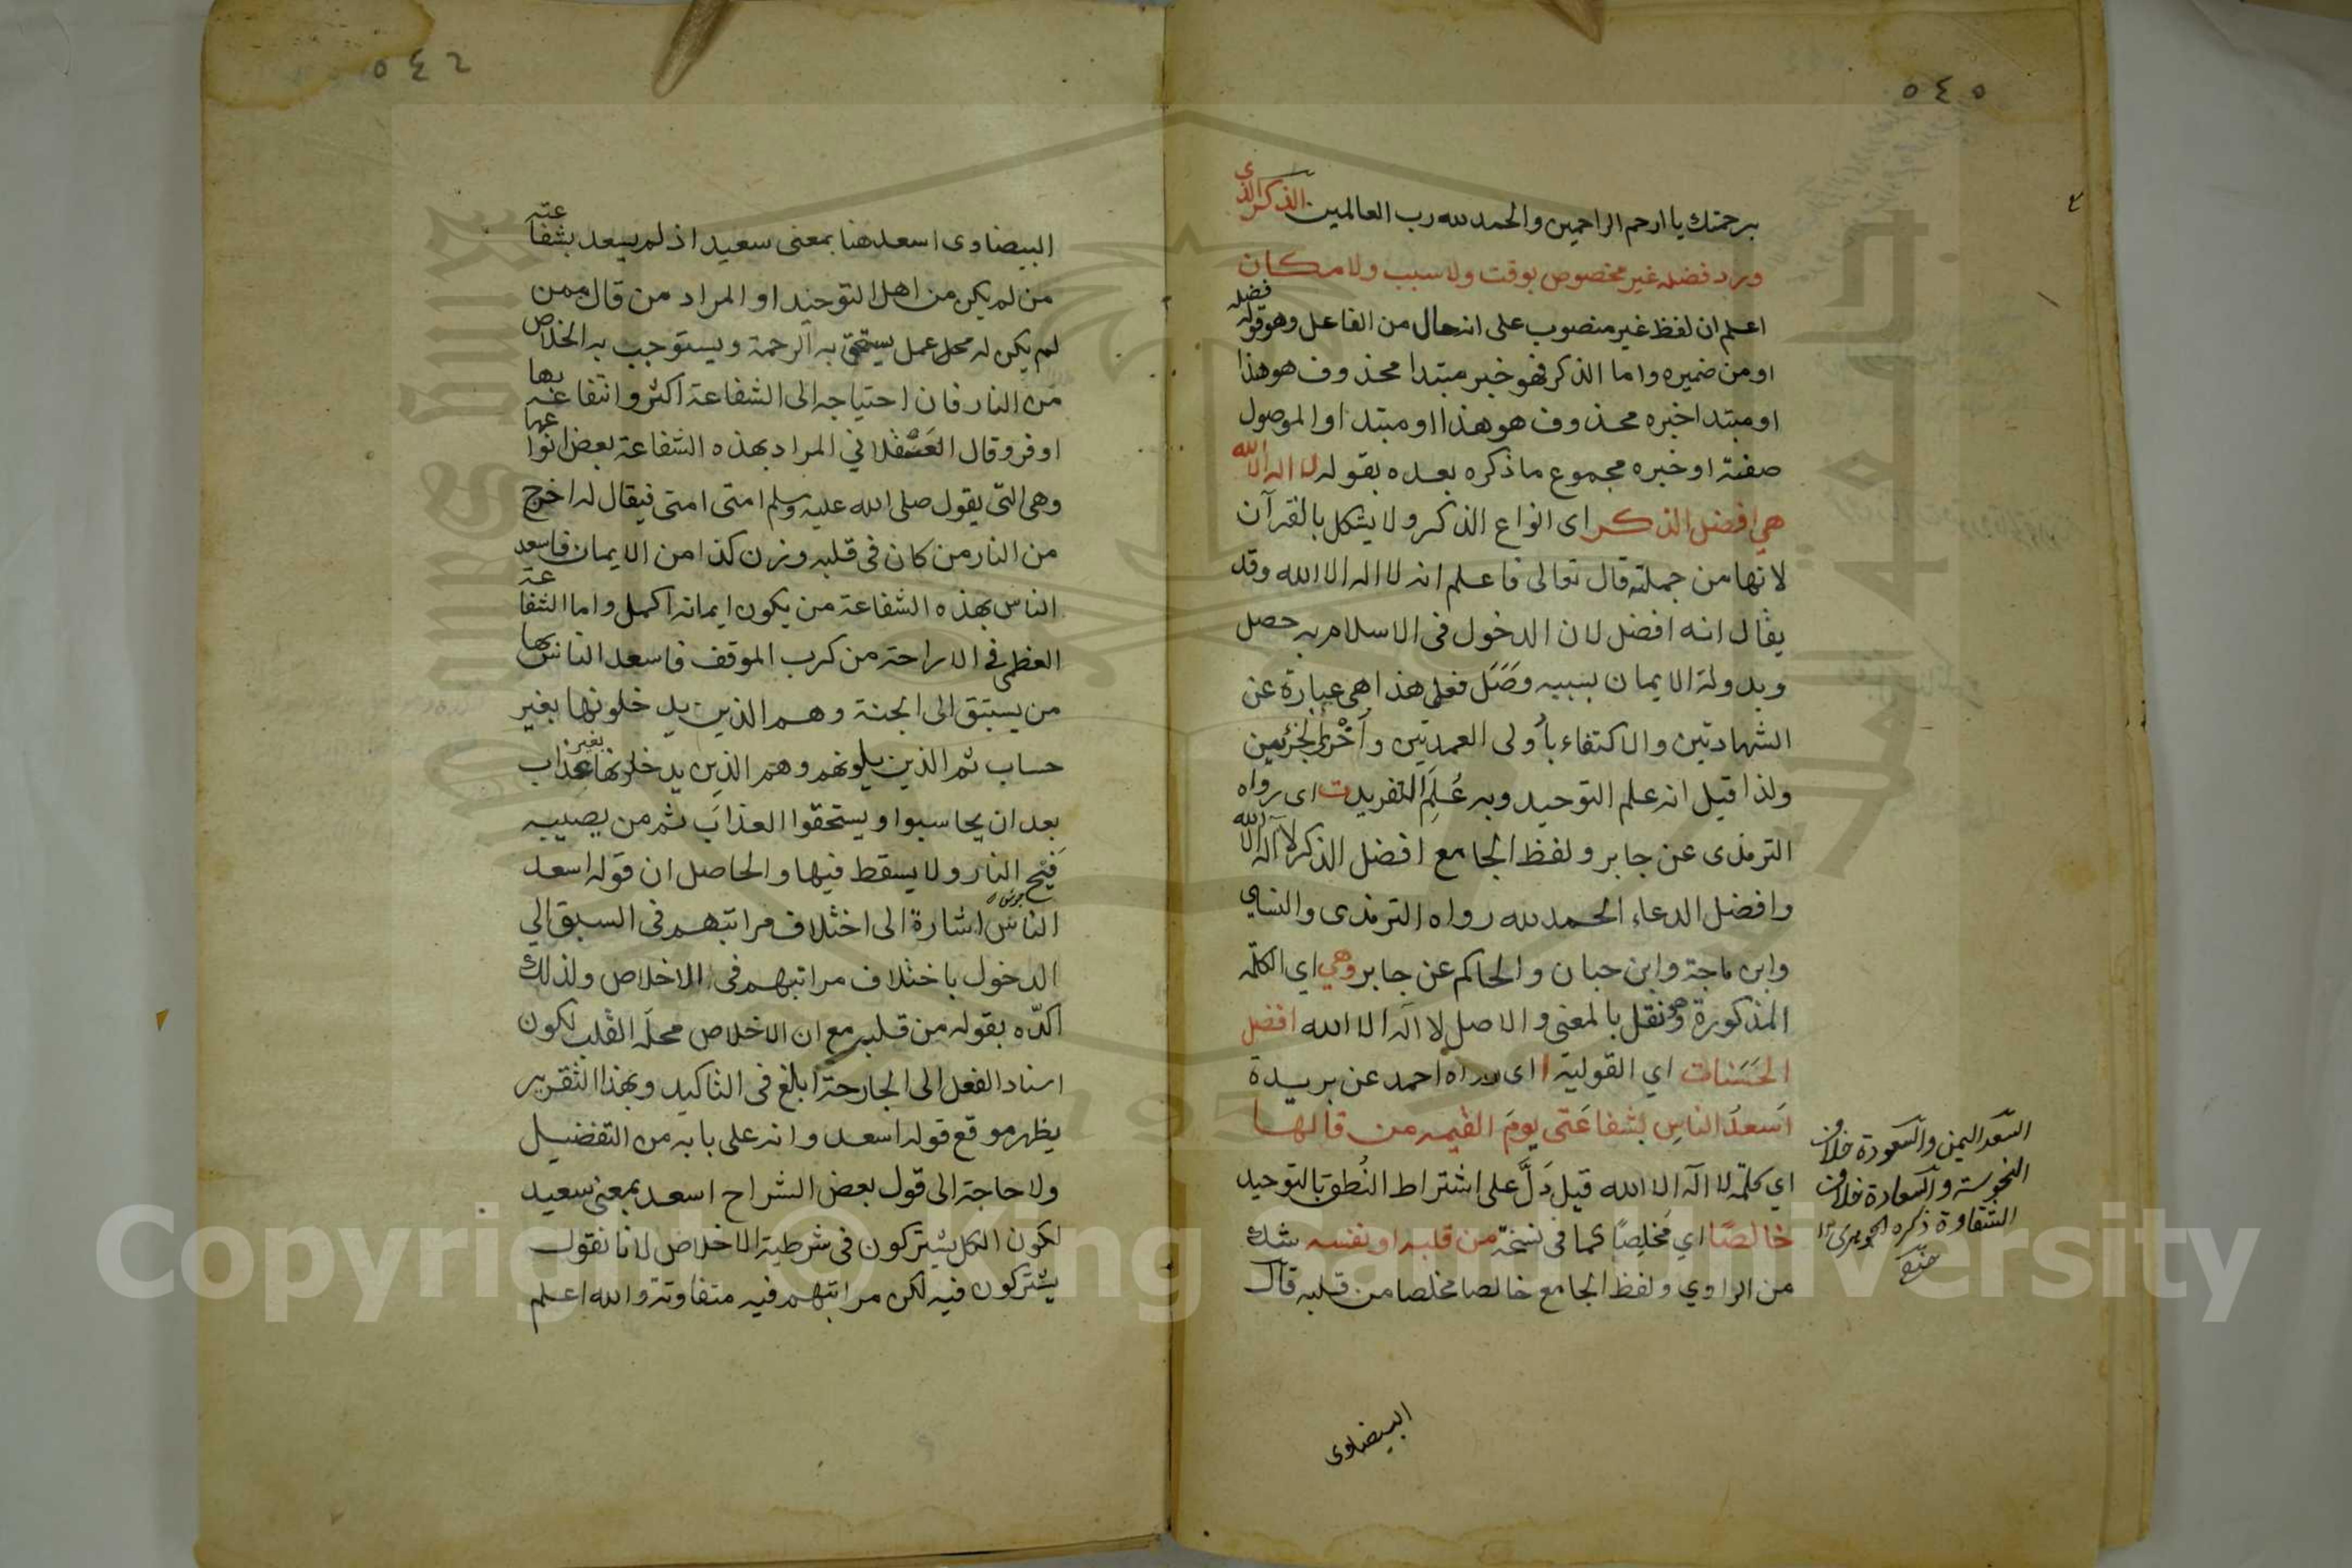 ٥٤٥
برحمتك يا ارحم الراحمين والحمد لله رب العالمين الذكر الذى
ورد فضله غير مخصوص بوقت ولا سبب ولا مكان
اعلم ان لفظ غير منصوب على انه حال من الفاعل وهو قوله فضله
او من ضميره واما الذكر فهو خبر مبتدا محذوف هو هذا
او مبتدا خبره محذوف هو هذا او مبتدا والموصول
صفته او خبره مجموع ما ذكره بعده بقوله لا اله الا الله
هي افضل الذكر اى انواع الذكر ولا يشكل بالقرآن
لانها من جملته قال تعالى فاعلم انه لا اله الا الله وقد
يقال انه افضل لان الدخول فى الاسلام به حصل
وبدولة الايمان بسببه وصل فعلى هذا هى عبارة عن
الشهادتين والاكتفاء باولى العمدتين واحرى الجزئين
ولذا قيل انه علم التوحيد وبه علم التفريد ت اى رواه
الترمذى عن جابر ولفظ الجامع افضل الذكر لا اله الا الله
وافضل الدعاء الحمد لله رواه الترمذى والنساي
وابن ماجة وابن حبان والحاكم عن جابر وهي اي الكلمة
المذكورة وهو نقل بالمعنى والاصل لا اله الا الله افضل
الحسنات اي القولية ا اى رواه احمد عن بريدة
اسعد الناس بشفاعتى يوم القيمه من قالها
اي كلمة لا اله الا الله قيل دل على اشتراط النطق بالتوحيد
خالصا اي مخلصا كما فى نسخة من قلبه او نفسه شك
من الراوي ولفظ الجامع خالصا مخلصا من قلبه قال
السعد اليمن والسعودة خلاف
النحوسة والسعادة خلاف
الشقاوة ذكره الجوهرى
البيضاوى
٥٤٦
البيضاوى اسعد هنا بمعنى سعيد اذ لم يسعد بشفاعته
من لم يكن من اهل التوحيد او المراد من قال ممن
لم يكن له محل عمل يستحق به الرحمة ويستوجب به الخلاص
من النار فان احتياجه الى الشفاعة اكثر وانتفاعه بها
اوفر وقال العسقلاني المراد بهذه الشفاعة بعض انواعها
وهى التى يقول صلى الله عليه وسلم امتى امتى فيقال له اخرج
من النار من كان فى قلبه وزن كذا من الايمان فاسعد
الناس بهذه الشفاعة من يكون ايمانه اكمل واما الشفاعة
العظمى فى الاراحة من كرب الموقف فاسعد الناس بها
من يستبق الى الجنة وهم الذين يدخلونها بغير
حساب ثم الذين يلونهم وهم الذين يدخلونها بغير عذاب
بعد ان يحاسبوا ويستحقوا العذاب ثم من يصيبه
فيح النار ولا يسقط فيها والحاصل ان قوله اسعد
الناس اشارة الى اختلاف مراتبهم فى السبق الي
الدخول باختلاف مراتبهم فى الاخلاص ولذلك
اكده بقوله من قلبه مع ان الاخلاص محله القلب لكون
اسناد الفعل الى الجارحة ابلغ فى التاكيد وبهذا التقرير
يظهر موقع قوله اسعد وانه على بابه من التفضيل
ولا حاجة الى قول بعض الشراح اسعد بمعنى سعيد
لكون الكل يشتركون فى شرطية الاخلاص لانا نقول
يشتركون فيه لكن مراتبهم فيه متفاوتة والله اعلم
Copyright © King Saud University